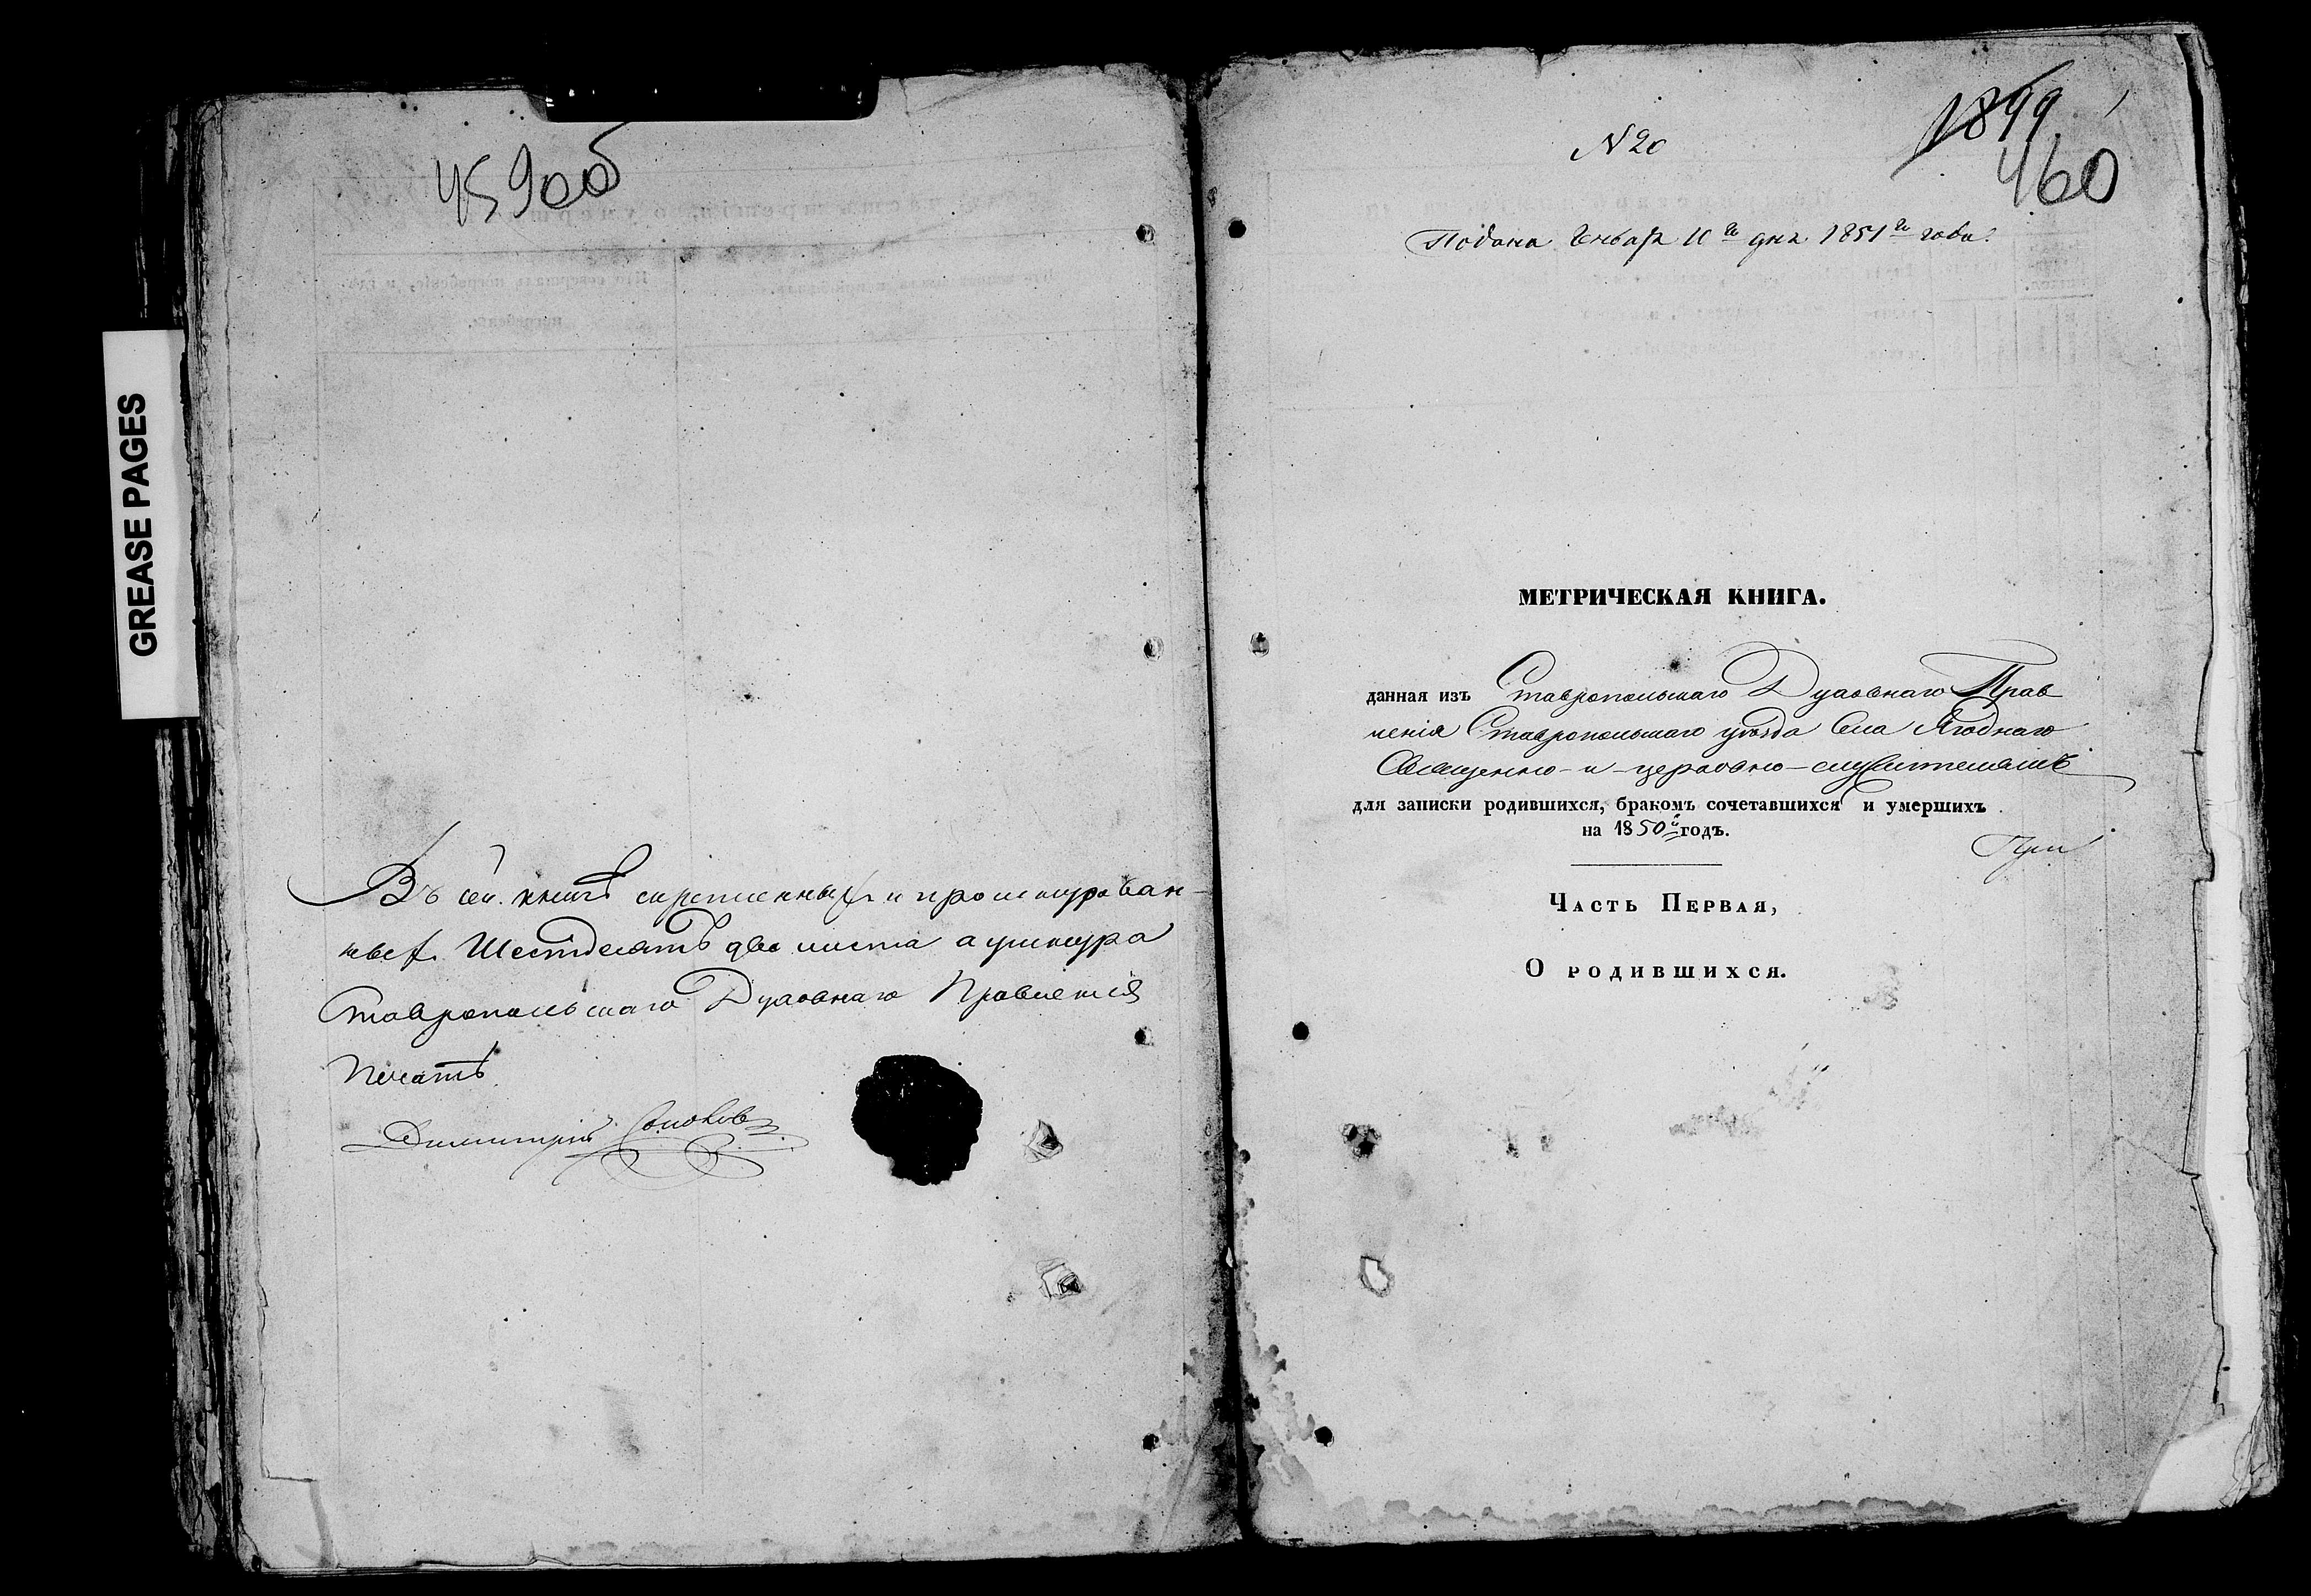 GREASE PAGES
459 об
Въ сей книгѣ скрепленныхъ и прошнурован-
ныхъ Шестдесятъ два листа а у шнура
Ставропольскаго Духовнаго Правленія
Печать
Димитрій
N 20
1899
460
Подана Генваря 10го дня 1851го года.
МЕТРИЧЕСКАЯ КНИГА.
данная изъ Ставропольскаго Духовнаго Прав
ленія Ставропольскаго уѣзда Села Ягоднаго
Священно-и-церковно-служителямъ
для записки родившихся, бракомъ сочетавшихся и умершихъ
на 1850й годъ.
При
Часть Первая,
О родившихся.